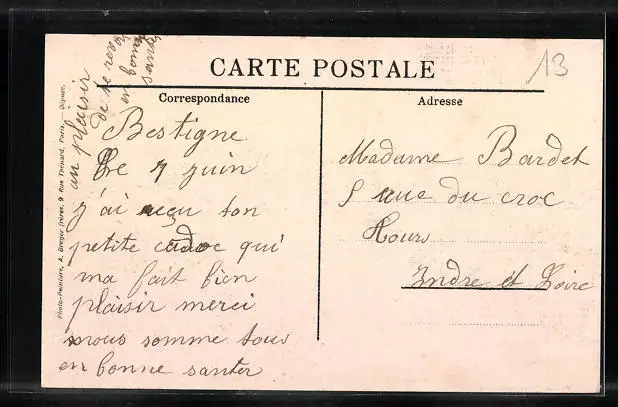 CARTE POSTALE
13
Correspondance
Adresse
au plaisir
de te revoir
en bonne
santer
Bestigne
Le 7 juin
j'ai reçu ton
petite qui
ma fait bien
plaisir merci
nous somme tous
en bonne santer
Madame Bardet
rue du croc
Tours
Indre et Loire
Photo-Peinture, A. Breger frères, 9 Rue Thénard, Paris. — Déposé.